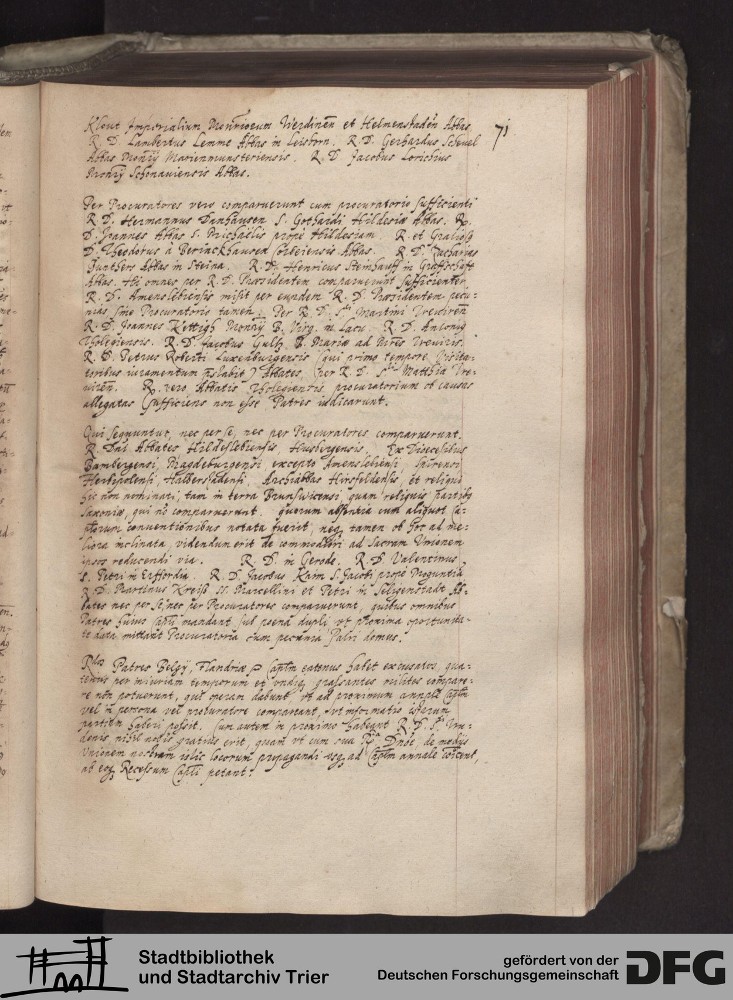 71
Klout Imperialium Mon̄riorum Werdineñ et Helmenstadeñ Abbas.
R. D. Lambertus Lemme Abbas in Leisborn. R. D. Gerhardus Scheuel
Abbas Mon̄rij Marienmunsteriensis. R. D. Jacobus Lorichius
Mon̄rij Schonauiensis Abbas.
Per Procuratores vero comparuerunt cum procuratorio sufficienti
R. D. Hermannus Danhausen S. Gothardi Hildesiæ Abbas. R.
D. Joannes Abbas S. Michaelis prope Hildesiam. R. et
D. Theodorus à Berinckhausen Corbeiensis Abbas. R. D. Zacharias
Junthers Abbas in Steina. R. D. Henricus Steinhauss in Graffschafft
Abbas. Hi omnes per R. D. Præsidentem comparuerunt sufficienter.
R. D. Amenslebiensis misit per eundem R. D. Præsidentem pecu-
nias sine Procuratorio tamen. Per R. D. Sti Martini Treuireñ
R. D. Joannes Kettigh Mon̄rij B. Virg. in Lacu. R. D. Antonius
Tholegiensis. R. D. Jacobus B. Mariæ ad Mires Treuiris.
R. D. Petrus Roberti Luxemburgensis (qui primo tempore Visita-
toribus iuramentum p̄stabit) Abbates. Per R. D. Sti Matthiæ Tre-
uireñ. R. vero Abbatis Tholegiensis procuratorium ob causas
allegatas sufficiens non esse Patres iudicarunt.
Qui sequuntur, nec per se, nec per Procuratores comparuerunt.
R. Dñi Abbates Hildeslebiensis Husbergensis. Ex Dioecesibus
Bambergensi, Magdeburgensi excepto Amenslebensi, Spirensi
Herbipolensi, Halberstadensi, Archiabbas Hirsfeldensis, et reliqui
hic non nominati, tam in terra Brunswicensi quam reliquis partibus
Saxoniæ, qui nō comparuerunt. quorum absentia cum aliquot Ca-
pitulorum conuentionibus notata fuerit, neq₃ tamen ob hoc ad me-
liora inclinata, videndum erit de commodiori ad Sacram Unionem
ipsos reducendi via. R. D. in Gerode. R. D. Valentinus
S. Petri in Erffordia. R. D. Jacobus Kam S. Jacobi prope Moguntia
R. D. Martinus Kreiss SS. Marcellini et Petri in Seligenstadt Ab-
bates nec per se, nec per Procuratores comparuerunt, quibus omnibus
Patres huius Capli mandant sub poena dupli vt proxima oportunita-
te data mittant Procuratoria cum pecunia Patri domus.
Rdos Patres Belgij, Flandriæ Caplm eatenus habet excusatos, qua-
tenus per iniuriam temporum et vndiq₃ grassantes milites compare-
re non potuerunt, qui operam dabunt vt ad proximum annale Caplm
vel in persona vel procuratore compareant, vt informatio istarum
partium haberi possit. Cum autem in proximo habeant R. D. S. Tru-
denis nihil nobis gratius erit, quam vt cum sua Rda Dnōe, de medijs
Unionem nostram istic locorum propagandi vsq₃ ad Caplm annale
ab eoq₃ Recessum Capli petant.
Stadtbibliothek
und Stadtarchiv Trier
gefördert von der
Deutschen Forschungsgemeinschaft
DFG